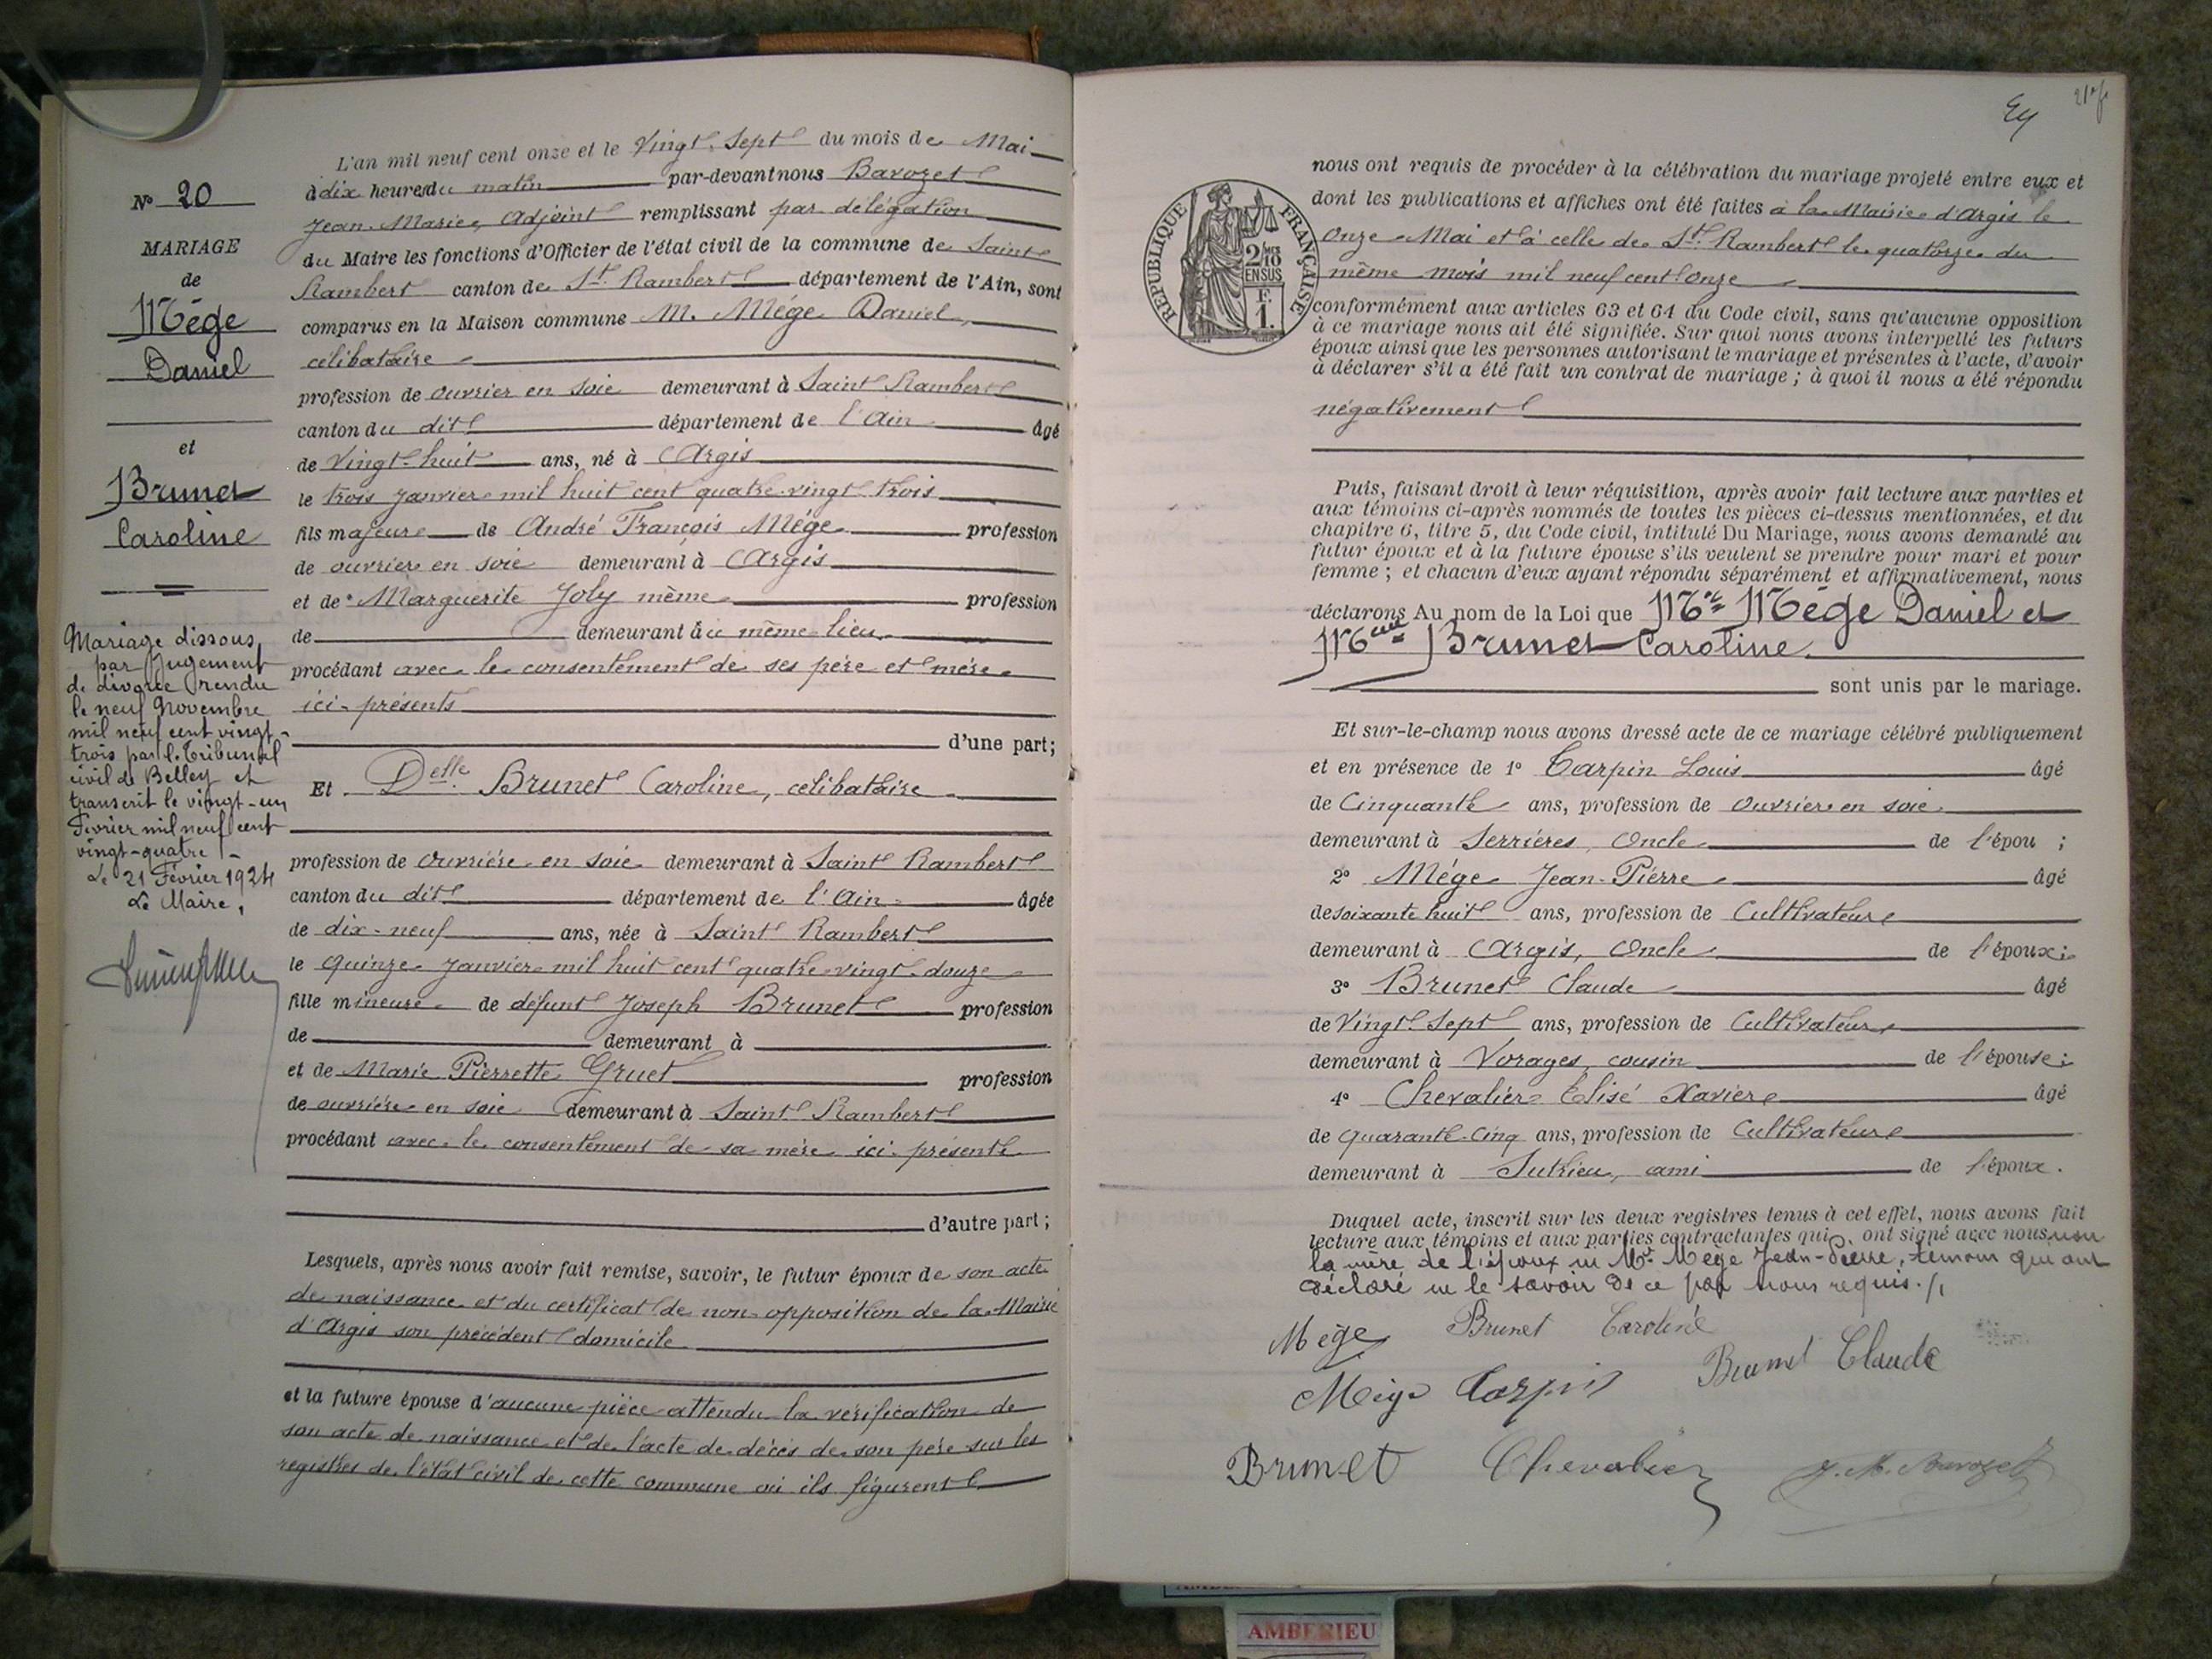 L'an mil neuf cent onze et le Vingt-Sept du mois de Mai
à dix heures du matin par-devant nous Barozet
Jean-Marie, Adjoint remplissant par délégation
du Maire les fonctions d'Officier de l'état civil de la commune de Saint
Rambert canton de St. Rambert département de l'Ain, sont
comparus en la Maison commune M. Mége Daniel,
célibataire
profession de ouvrier en soie demeurant à Saint Rambert
canton du dit département de l'Ain âgé
de Vingt-huit ans, né à Argis
le trois Janvier mil huit cent quatre-vingt-trois
fils majeur de André François Mége profession
de ouvrier en soie demeurant à Argis
et de Marguerite Joly même profession
de demeurant au même lieu
procédant avec le consentement de ses père et mère
ici présents
d'une part;
Et Delle Brunet Caroline, célibataire
profession de ouvrière en soie demeurant à Saint Rambert
canton du dit département de l'Ain âgée
de dix-neuf ans, née à Saint Rambert
le quinze Janvier mil huit cent quatre-vingt-douze
fille mineure de défunt Joseph Brunet profession
de demeurant à
et de Marie Pierrette Gruet profession
de ouvrière en soie demeurant à Saint Rambert
procédant avec le consentement de sa mère ici présente
d'autre part;
Lesquels, après nous avoir fait remise, savoir, le futur époux de son acte
de naissance et du certificat de non-opposition de la Mairie
d'Argis son précédent domicile
et la future épouse d'aucune pièce attendu la vérification de
son acte de naissance et de l'acte de décès de son père sur les
registres de l'état civil de cette commune où ils figurent
No 20
MARIAGE
de
Mége
Daniel
et
Brunet
Caroline
Mariage dissous
par jugement
de divorce rendu
le neuf Novembre
mil neuf cent vingt-
trois par le Tribunal
civil de Belley et
transcrit le vingt-un
Février mil neuf cent
vingt-quatre
Le 21 Février 1924
Le Maire,
RÉPUBLIQUE FRANÇAISE
2/10
EN SUS
F.
1.
nous ont requis de procéder à la célébration du mariage projeté entre eux et
dont les publications et affiches ont été faites à la Mairie d'Argis le
onze Mai et à celle de St. Rambert le quatorze du
même mois mil neuf cent onze
conformément aux articles 63 et 64 du Code civil, sans qu'aucune opposition
à ce mariage nous ait été signifiée. Sur quoi nous avons interpellé les futurs
époux ainsi que les personnes autorisant le mariage et présentes à l'acte, d'avoir
à déclarer s'il a été fait un contrat de mariage; à quoi il nous a été répondu
négativement
Puis, faisant droit à leur réquisition, après avoir fait lecture aux parties et
aux témoins ci-après nommés de toutes les pièces ci-dessus mentionnées, et du
chapitre 6, titre 5, du Code civil, intitulé Du Mariage, nous avons demandé au
futur époux et à la future épouse s'ils veulent se prendre pour mari et pour
femme; et chacun d'eux ayant répondu séparément et affirmativement, nous
déclarons Au nom de la Loi que Mr Mége Daniel et
Melle Brunet Caroline.
sont unis par le mariage.
Et sur-le-champ nous avons dressé acte de ce mariage célébré publiquement
et en présence de 1º Carpin Louis âgé
de Cinquante ans, profession de ouvrier en soie
demeurant à Serrières, Oncle de l'épou ;
2º Mége Jean-Pierre âgé
de soixante huit ans, profession de Cultivateur
demeurant à Argis, Oncle de l'époux;
3º Brunet Claude âgé
de Vingt-Sept ans, profession de Cultivateur
demeurant à Vorages, cousin de l'épouse;
4º Chevalier Elisé Xavier âgé
de quarante-cinq ans, profession de Cultivateur
demeurant à Suthieu, ami de l'époux.
Duquel acte, inscrit sur les deux registres tenus à cet effet, nous avons fait
lecture aux témoins et aux parties contractantes qui ont signé avec nous, non
la mère de l'époux ni Mr Mége Jean-Pierre, témoin qui ont
déclaré ne le savoir de ce par nous requis.
Mége Brunet Caroline
Mége Carpin Brunet Claude
Brunet Chevalier J. M. Barozet
AMBERIEU